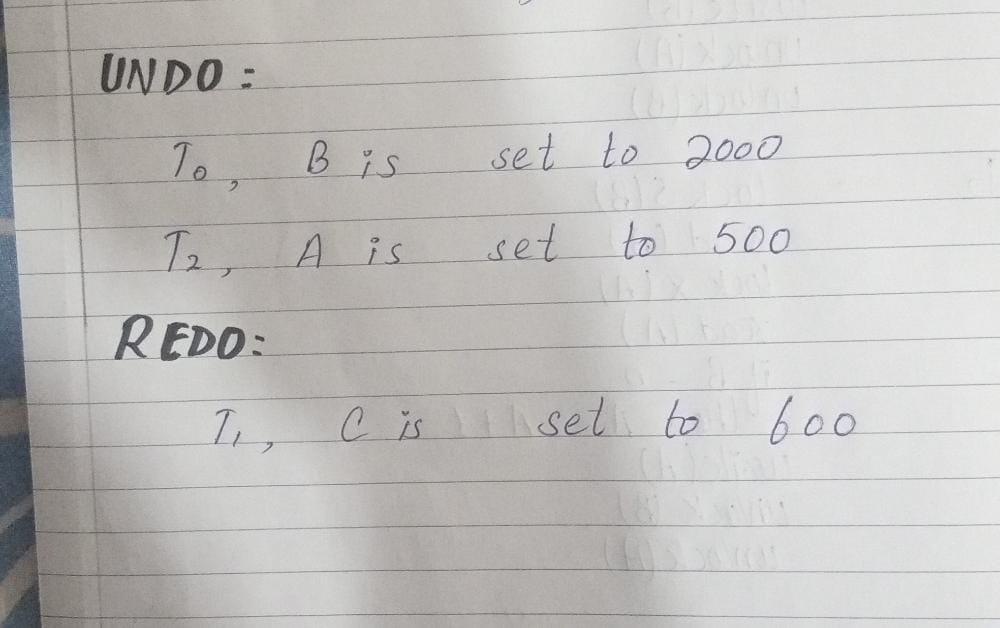 UNDO:
T₀, B is set to 2000
T₂, A is set to 500
REDO:
T₁, C is set to 600